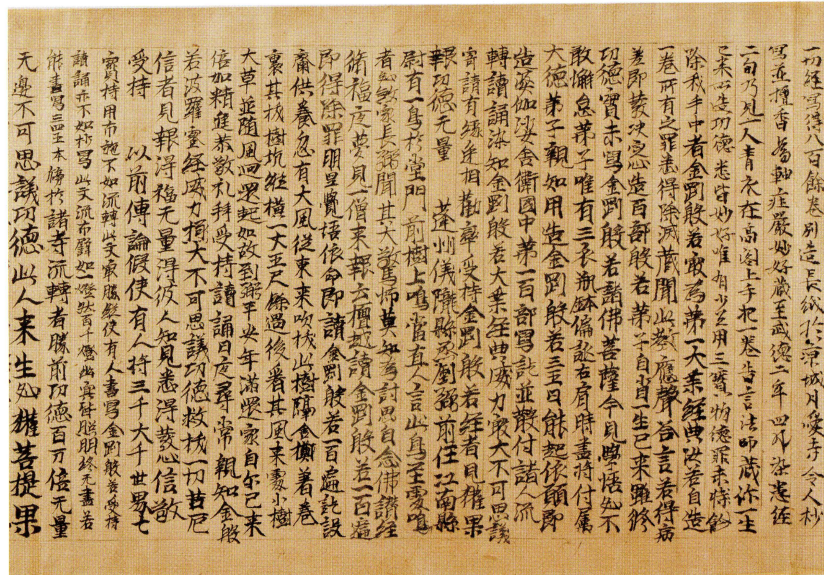 一切經寫得八百餘卷別造長紙於京城月愛寺令人抄
寫並檀香為軸莊嚴妙好藏至武德二年四月染患經
二旬乃見一人青衣在高閣上手把一卷告言法師藏你一生
已來所造功德悉皆妙好唯有少互用三寶物德罪未除
除我手中者金剛般若最為第一大乘經典汝若自造
一卷所有之罪悉得除滅藏聞此教應聲答言若得病
差即發決定造百部般若弟子自省一生已來雖修
功德實未寫金剛般若諸佛菩薩今見曉悟必不
敢懈怠弟子唯有三衣瓶鉢偏袒右肩時盡將付屬
大德弟子親知用造金剛般若三五日能起依願即
造 舍衛國中第一百部寫訖並散付諸人流
轉讀誦海知金剛般若大乘經典威力最大不可思議
寄請有緣遞相勸率受持金剛般若經者見獲果
報功德无量 蓬州儀隴縣丞劉弼前任江南縣
尉有一鳥於堂門前樹上鳴當直人言此鳥至處鳴
者必殺家長弼聞其大驚怖莫知為計思自念佛讚經
術福夜夢見一僧來報云檀越讀金剛般若一百遍
即得除罪明旦覺悟依命即讀金剛般若一百遍訖設
齋供養忽有大風從東來吹拔此樹隔舍擲著巷
裏其拔樹坑縱橫一丈五尺餘過後看其風來處小樹
大草並隨風迴還起如故到弼平安年滿還家自尓已來
倍加精進恭敬礼拜受持讀誦日夜尋常親知金般
若波羅蜜經威力極大不可思議功德救拔一切苦厄
信者見報得福无量得彼人知見悉得發心信敬
受持 以前傳論假使有人將三千大千世界七
寶持用布施不如流轉此文最勝縱使有人書寫金剛般若受持
讀誦亦不如抄寫此文流布譬如燈然百千燈幽冥皆照明終无盡若
能書寫三四五本勝於諸寺流轉者勝前功德百万倍无量
无邊不可思議功德此人來生必獲菩提果